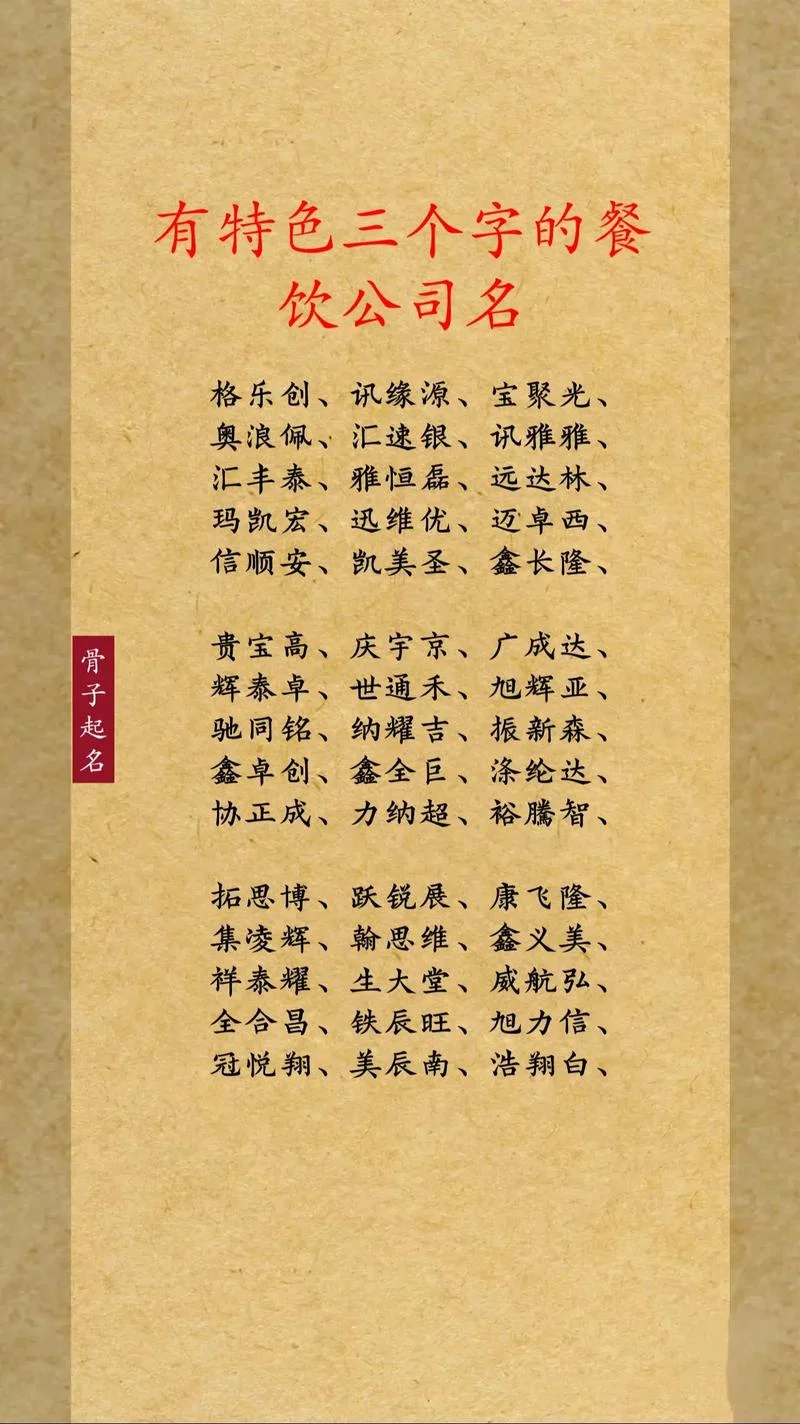 有特色三个字的餐
饮公司名
格乐创、讯缘源、宝聚光、
奥浪佩、汇速银、讯雅雅、
汇丰泰、雅恒磊、远达林、
玛凯宏、迅维优、迈卓西、
信顺安、凯美圣、鑫长隆、
贵宝高、庆宇京、广成达、
辉泰卓、世通禾、旭辉亚、
驰同铭、纳耀吉、振新森、
鑫卓创、鑫全巨、涤纶达、
协正成、力纳超、裕腾智、
拓思博、跃锐展、康飞隆、
集凌辉、翰思维、鑫义美、
祥泰耀、生大堂、威航弘、
全合昌、铁辰旺、旭力信、
冠悦翔、美辰南、浩翔白、
骨子起名